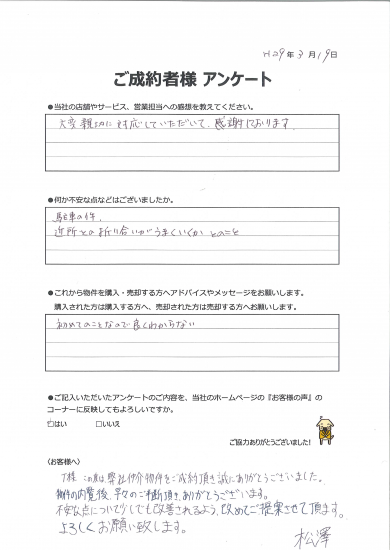 H29年3月19日
ご成約者様 アンケート
●当社の店舗やサービス、営業担当への感想を教えてください。
大変親切に対応していただいて、感謝しております。
●何か不安な点などはございましたか。
駐車の件、
近所との折り合いがうまくいくか とのこと
●これから物件を購入・売却する方へアドバイスやメッセージをお願いします。
購入された方は購入する方へ、売却された方は売却する方へお願いします。
初めてのことなので良くわからない
●ご記入いただいたアンケートのご内容を、当社のホームページの『お客様の声』の
コーナーに反映してもよろしいですか。
☑はい □いいえ
ご協力ありがとうございました!
〈お客様へ〉
T様 この度は、弊社仲介物件をご成約頂き誠にありがとうございました。
物件の内覧後、早々のご判断頂き、ありがとうございます。
不安な点について少しでも改善されるよう、改めてご提案させて頂ます。
よろしくお願い致します。
松澤